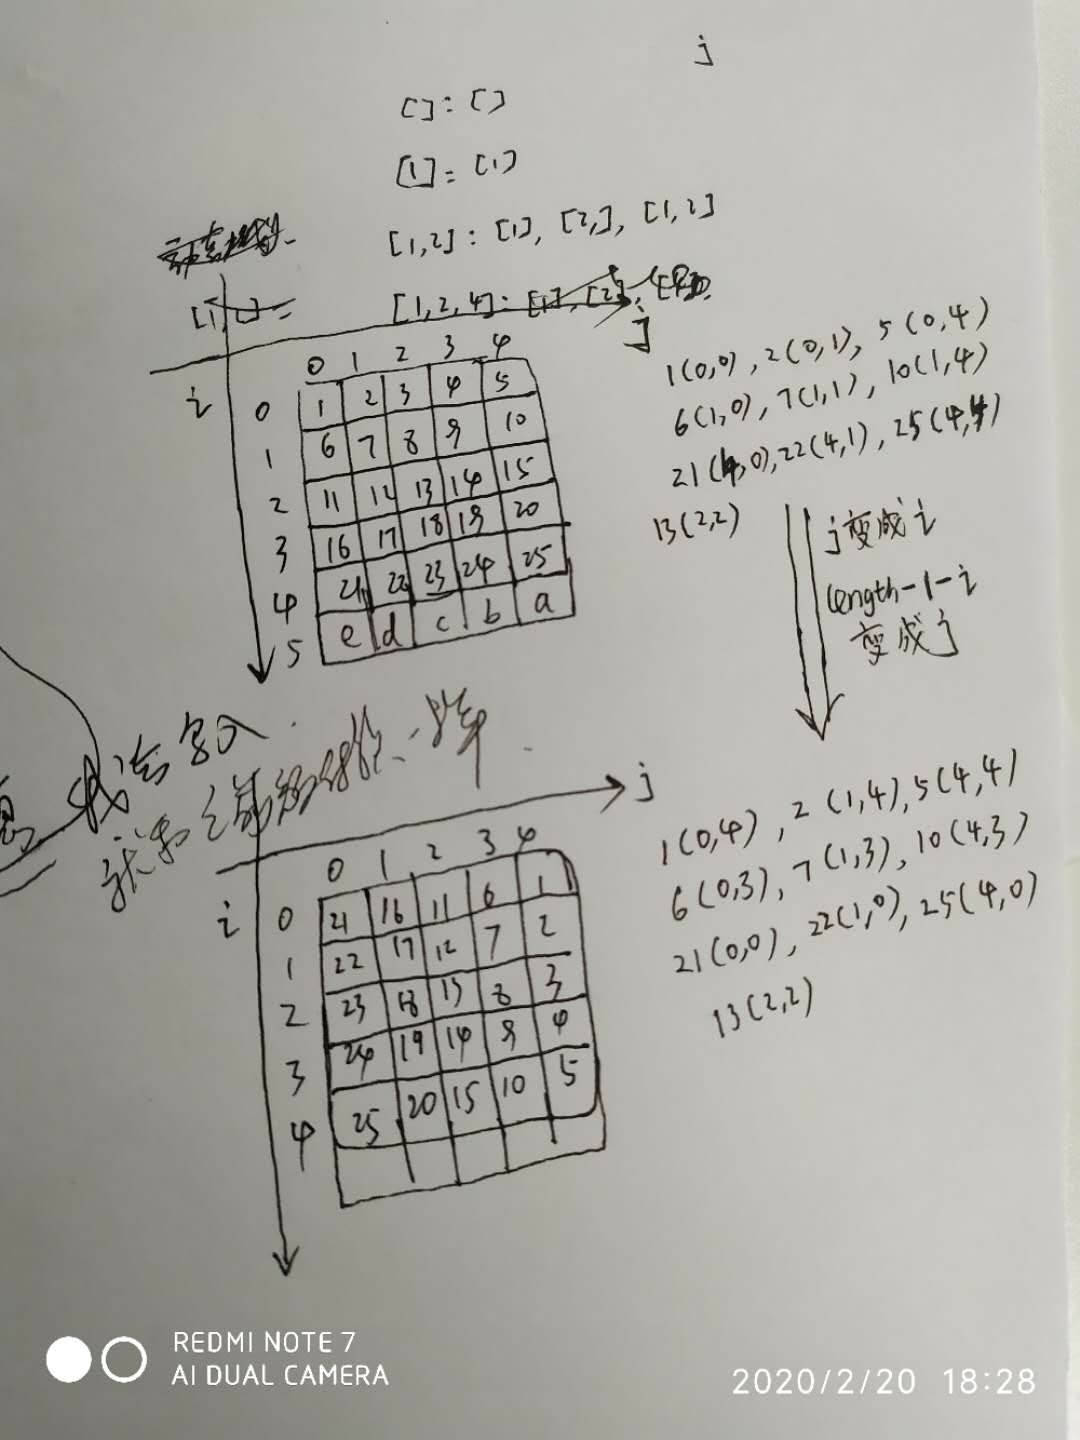 j
[]: []
[1]: [1]
[1,2]: [1], [2,], [1,2]
[1,2,4]: [1], [2],
j
0 1 2 3 4
i
0 1 2 3 4 5
1 6 7 8 9 10
2 11 12 13 14 15
3 16 17 18 19 20
4 21 22 23 24 25
5 e d c b a
1(0,0), 2(0,1), 5(0,4)
6(1,0), 7(1,1), 10(1,4)
21(4,0), 22(4,1), 25(4,4)
13(2,2)
j变成i
length-1-i
变成j
我会写入
j
0 1 2 3 4
i
0 21 16 11 6 1
1 22 17 12 7 2
2 23 18 13 8 3
3 24 19 14 9 4
4 25 20 15 10 5
1(0,4), 2(1,4), 5(4,4)
6(0,3), 7(1,3), 10(4,3)
21(0,0), 22(1,0), 25(4,0)
13(2,2)
REDMI NOTE 7
AI DUAL CAMERA
2020/2/20 18:28